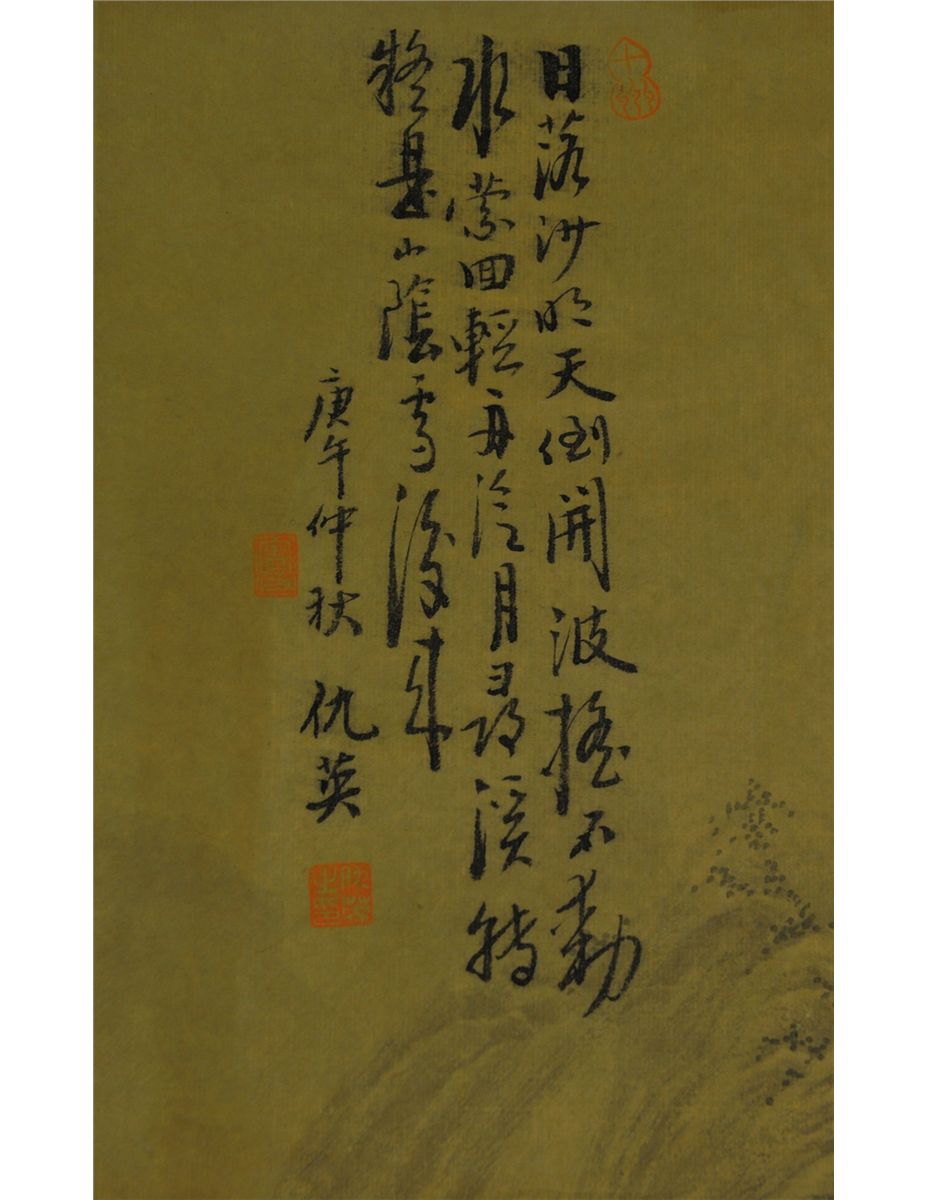 日落沙明天倒開波搖石動
水縈回輕舟泛月尋溪轉
疑是山陰雪後來
庚午仲秋 仇英